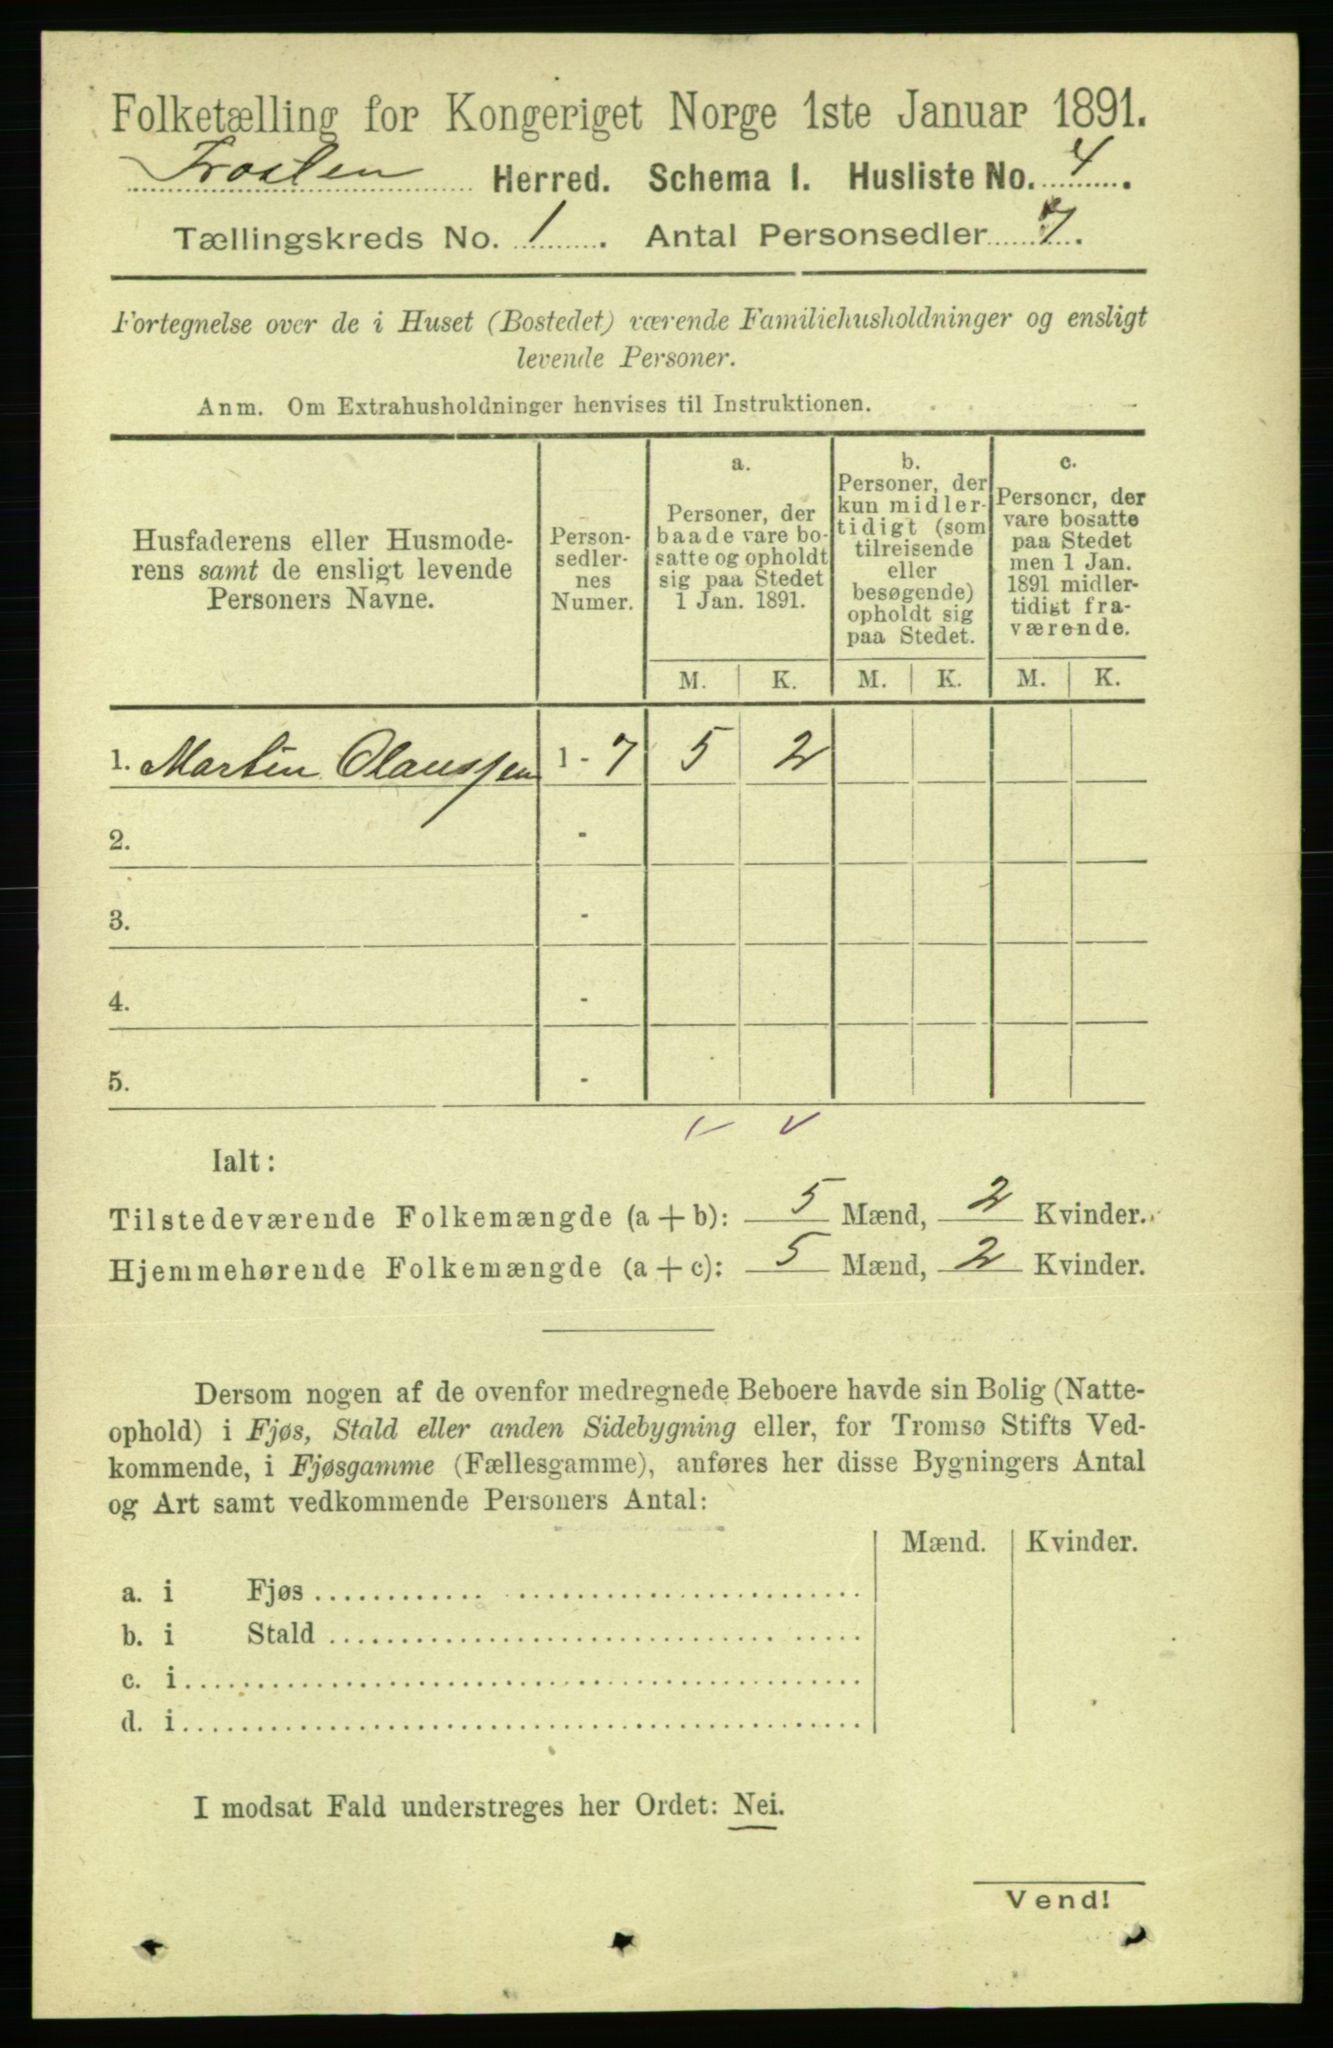 Folketælling for Kongeriget Norge 1ste Januar 1891.
Frosten Herred. Schema I. Husliste No. 4.
Tællingskreds No. 1. Antal Personsedler 7.
Fortegnelse over de i Huset (Bostedet) værende Familiehusholdninger og ensligt
levende Personer.
Anm. Om Extrahusholdninger henvises til Instruktionen.
Husfaderens eller Husmode-
rens samt de ensligt levende
Personers Navne.
Person-
sedler-
nes
Numer.
a.
Personer, der
baade vare bo-
satte og opholdt
sig paa Stedet
1 Jan. 1891.
b.
Personer, der
kun midler-
tidigt (som
tilreisende
eller
besøgende)
opholdt sig
paa Stedet.
c.
Personer, der
vare bosatte
paa Stedet
men 1 Jan.
1891 midler-
tidigt fra-
værende.
M. K. M. K. M. K.
1. Martin Olaussen 1 - 7 5 2
2. -
3. -
4. -
5. -
Ialt:
Tilstedeværende Folkemængde (a + b): 5 Mænd, 2 Kvinder.
Hjemmehørende Folkemængde (a + c): 5 Mænd, 2 Kvinder.
Dersom nogen af de ovenfor medregnede Beboere havde sin Bolig (Natte-
ophold) i Fjøs, Stald eller anden Sidebygning eller, for Tromsø Stifts Ved-
kommende, i Fjøsgamme (Fællesgamme), anføres her disse Bygningers Antal
og Art samt vedkommende Personers Antal:
Mænd. Kvinder.
a. i Fjøs
b. i Stald
c. i
d. i
I modsat Fald understreges her Ordet: Nei.
Vend!